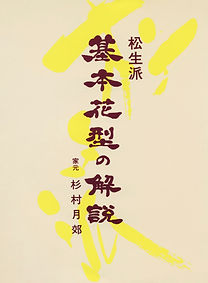 松生派
基本花型の解説
家元 杉村月郊